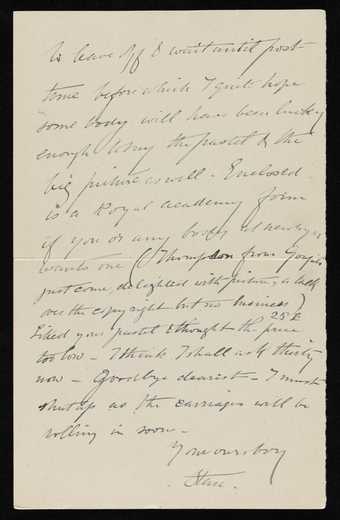 to leave off & wait until post
time before which I quite hope
some body will have been lucky
enough to buy the pastel & the
big picture as well - Enclosed
is a Royal Academy form
if you or any body at
wants one (Thompson from Goupils
just come, delighted with picture, a talk
over the copyright but no business)
25£
Liked your pastel & thought the price
too low - I think I shall ask thirty
now - Goodbye dearest - I must
shut up as the carriages will be
rolling in soon -
Your own boy